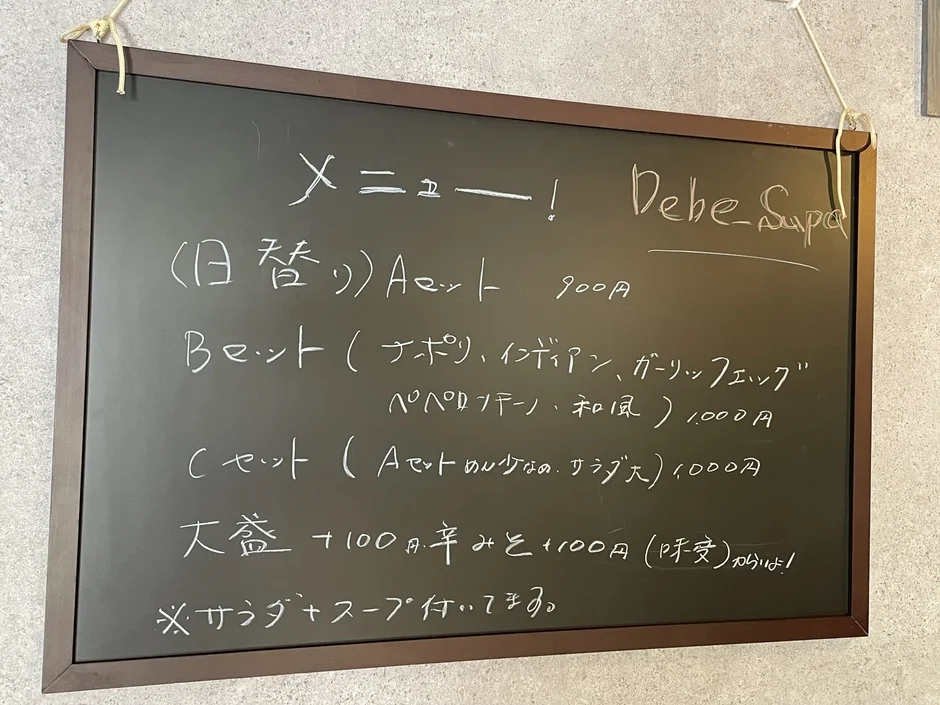 メニュー!
Debe_Supa
(日替り)Aセット 900円
Bセット(ナポリ、インディアン、ガーリックエッグ
ペペロンチーノ、和風)1,000円
Cセット(Aセットめん少なめ、サラダ大)1,000円
大盛 +100円 辛みそ+100円(味変)からいよ!
※サラダ+スープ付いてます。